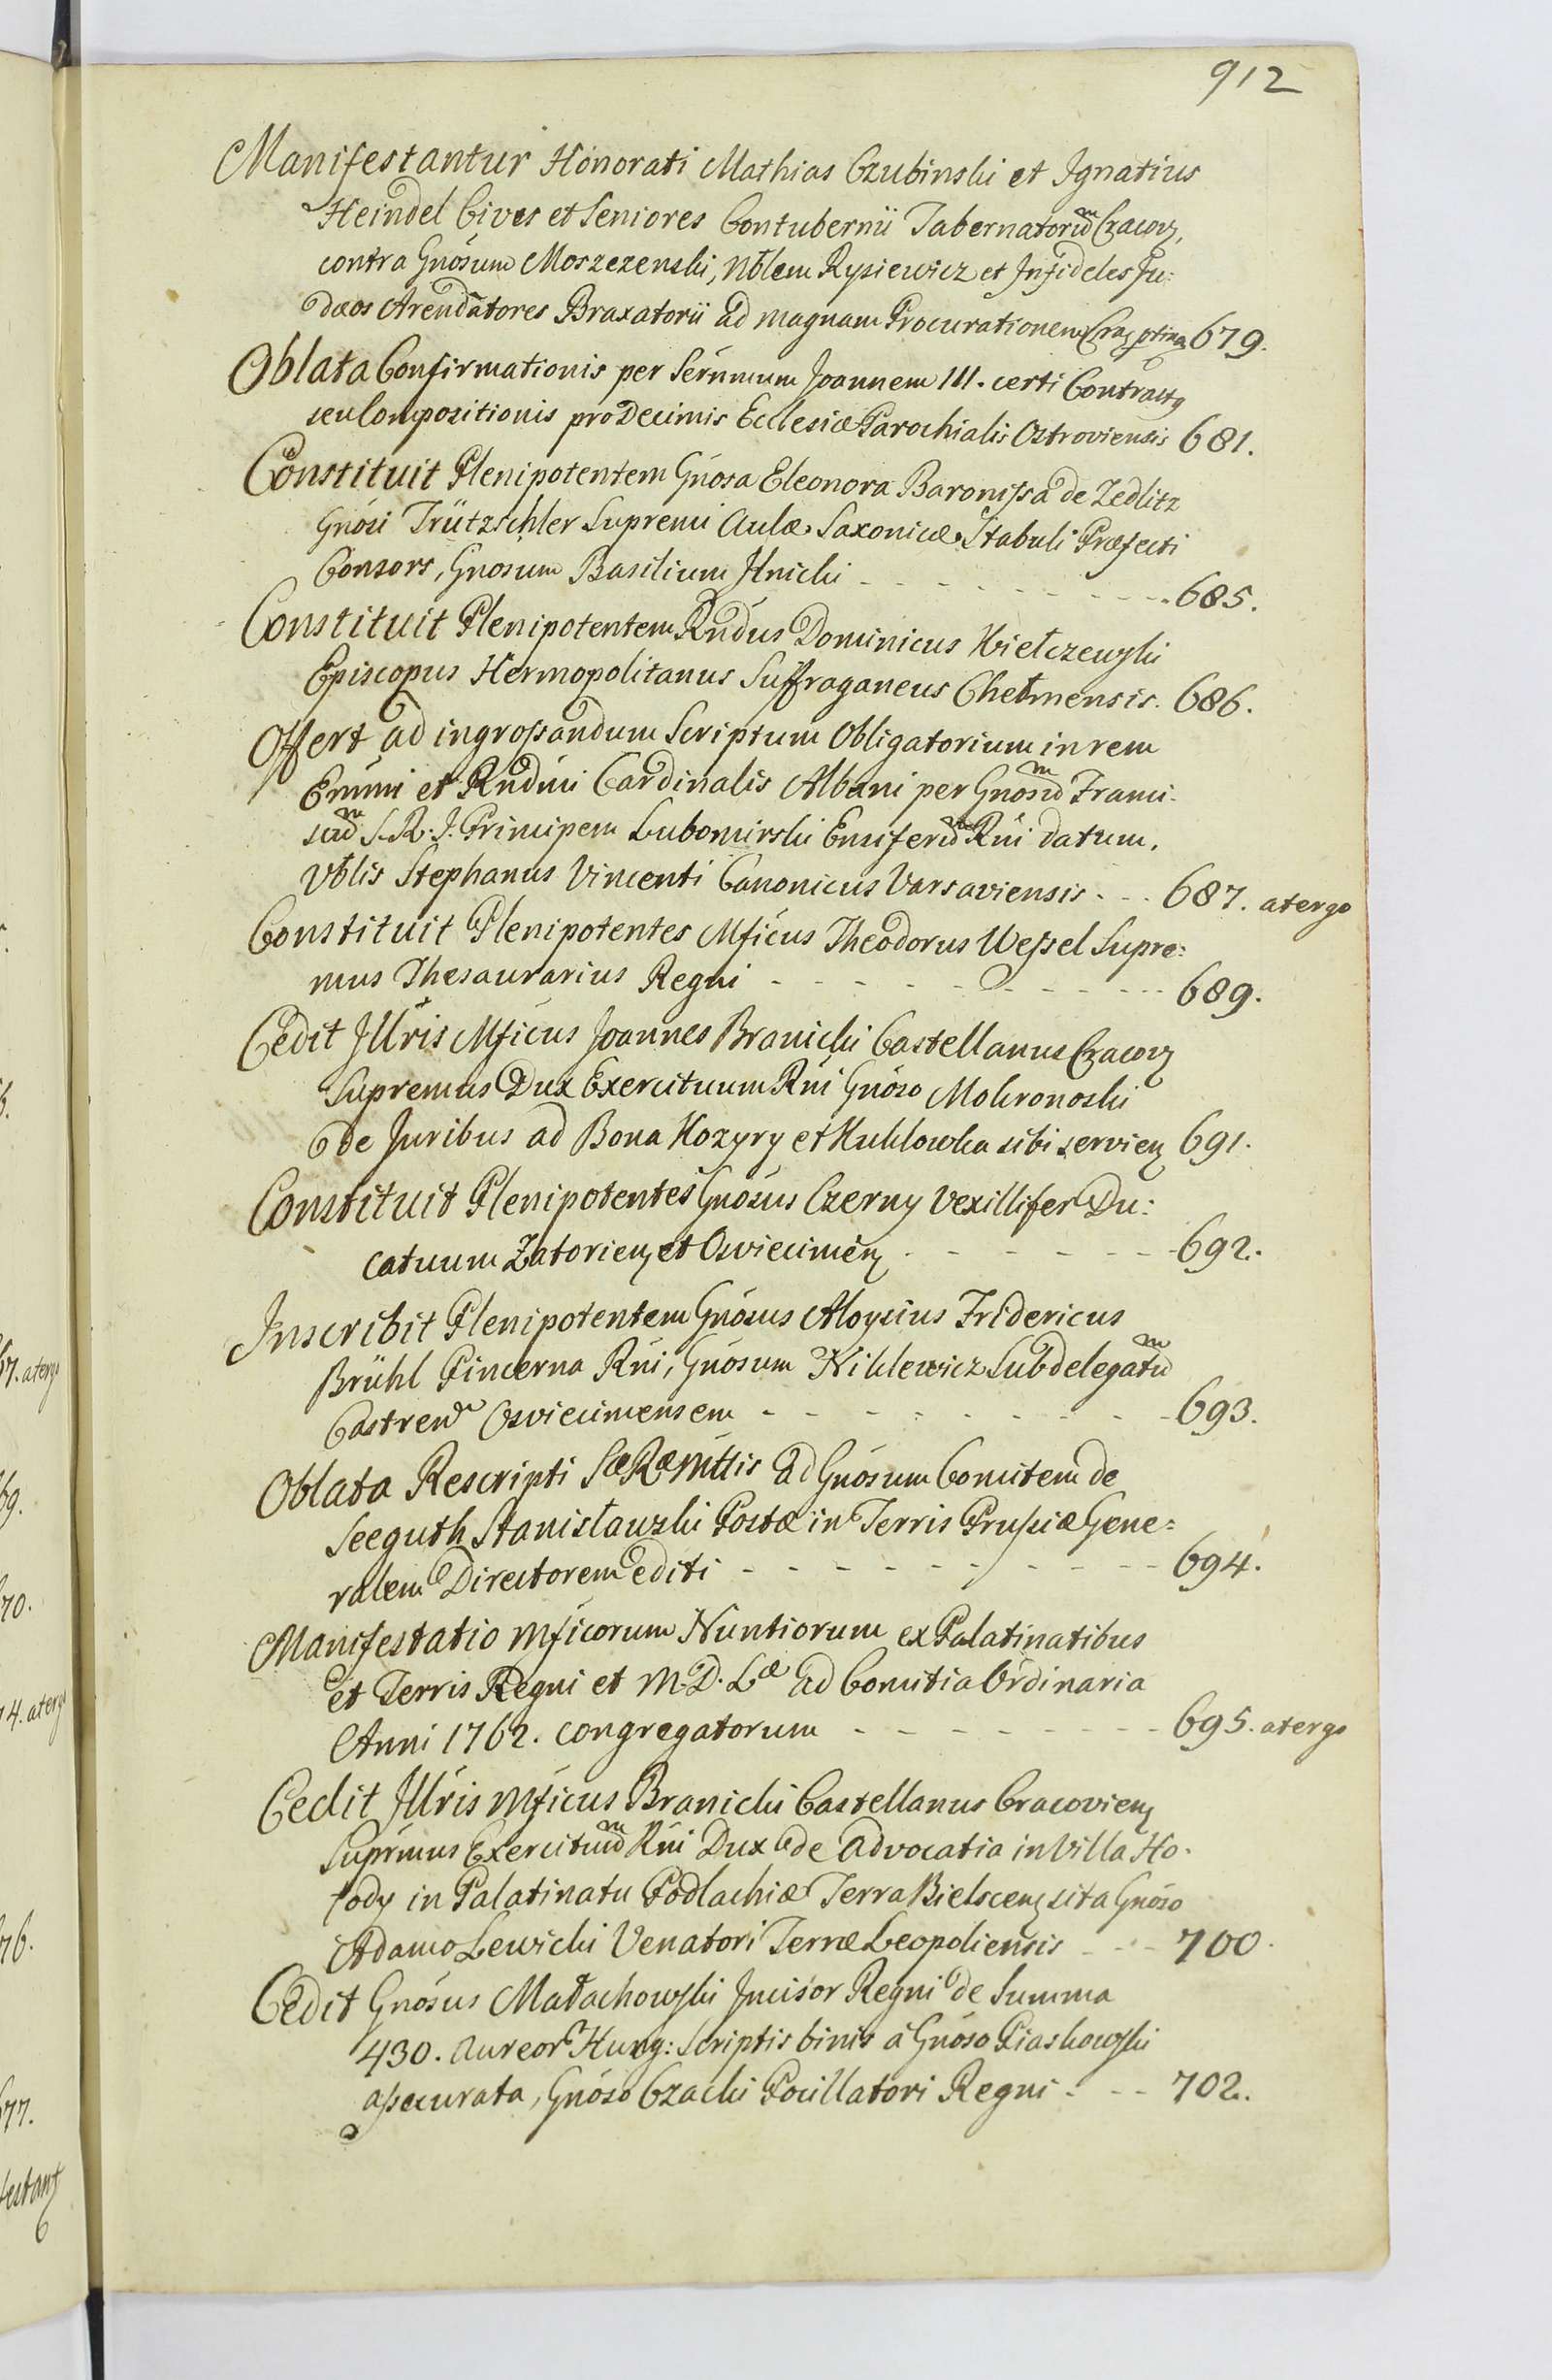 912
Manifestantur Honorati Mathias Czubinski et Ignatius
Heindel Cives et Seniores Contubernii Tabernatorum Cracov,
contra Gnosum Moszczenski, Nblem Rysiewicz et Infideles Ju:
dæos Arendatores Braxatorii ad magnam Procurationem Crac ptinen 679.
Oblata Confirmationis per Sernmum Joannem III. certi Contractus
seu Compositionis pro Decimis Ecclesiæ Parochialis Ostroviensis 681.
Constituit Plenipotentem Gnosa Eleonora Baronissa de Zedlitz
Gnosi Trützschler Supremi Aulæ Saxonicæ Stabuli Præfecti
Consors, Gnosum Basilium Ilnicki - - - 685.
Constituit Plenipotentem Rndus Dominicus Kiełczewski
Episcopus Hermopolitanus Suffraganeus Chełmensis. 686.
Offert ad ingrossandum Scriptum Obligatorium in rem
Emmi et Rndmi Cardinalis Albani per Gnosum Franci-
scum S. R. J. Principem Lubomirski Ensiferum Rni datum.
Vblis Stephanus Vincenti Canonicus Varsaviensis - - - 687. atergo
Constituit Plenipotentes Mficus Theodorus Wessel Supre:
mus Thesaurarius Regni - - - 689.
Cedit Jllris Mficus Joannes Branicki Castellanus Cracov
Supremus Dux Exercituum Rni Gnoso Mokronoski
de Juribus ad Bona Kozyry et Kuklowka sibi servien 691.
Constituit Plenipotentes Gnosus Czerny Vexillifer Du:
catuum Zatorien et Osviecimen - - - 692.
Inscribit Plenipotentem Gnosus Aloysius Fridericus
Brühl Pincerna Rni, Gnosum Niklewicz Subdelegatum
Castren Osviecimensem - - - 693.
Oblata Rescripti Sæ Ræ Mttis ad Gnosum Comitem de
Seeguth Stanisławski Postæ in Terris Prussiæ Gene=
ralem Directorem editi - - - 694.
Manifestatio Mficorum Nuntiorum ex Palatinatibus
et Terris Regni et M. D. Læ ad Comitia Ordinaria
Anni 1762. congregatorum - - - 695. atergo
Cedit Jllris Mficus Branicki Castellanus Cracovien
Suprmus Exercituum Rni Dux de Advocatia in Villa Ho-
łody in Palatinatu Podlachiæ Terra Bielscen sita Gnoso
Adamo Lewicki Venatori Terræ Leopoliensis - - - 700.
Cedit Gnosus Małachowski Incisor Regni de Summa
430. Aureor Hung: Scriptis binis à Gnoso Piaskowski
assecurata, Gnoso Czacki Pocillatori Regni - - - 702.
67. atergo
69.
70.
74. atergo
76.
677.